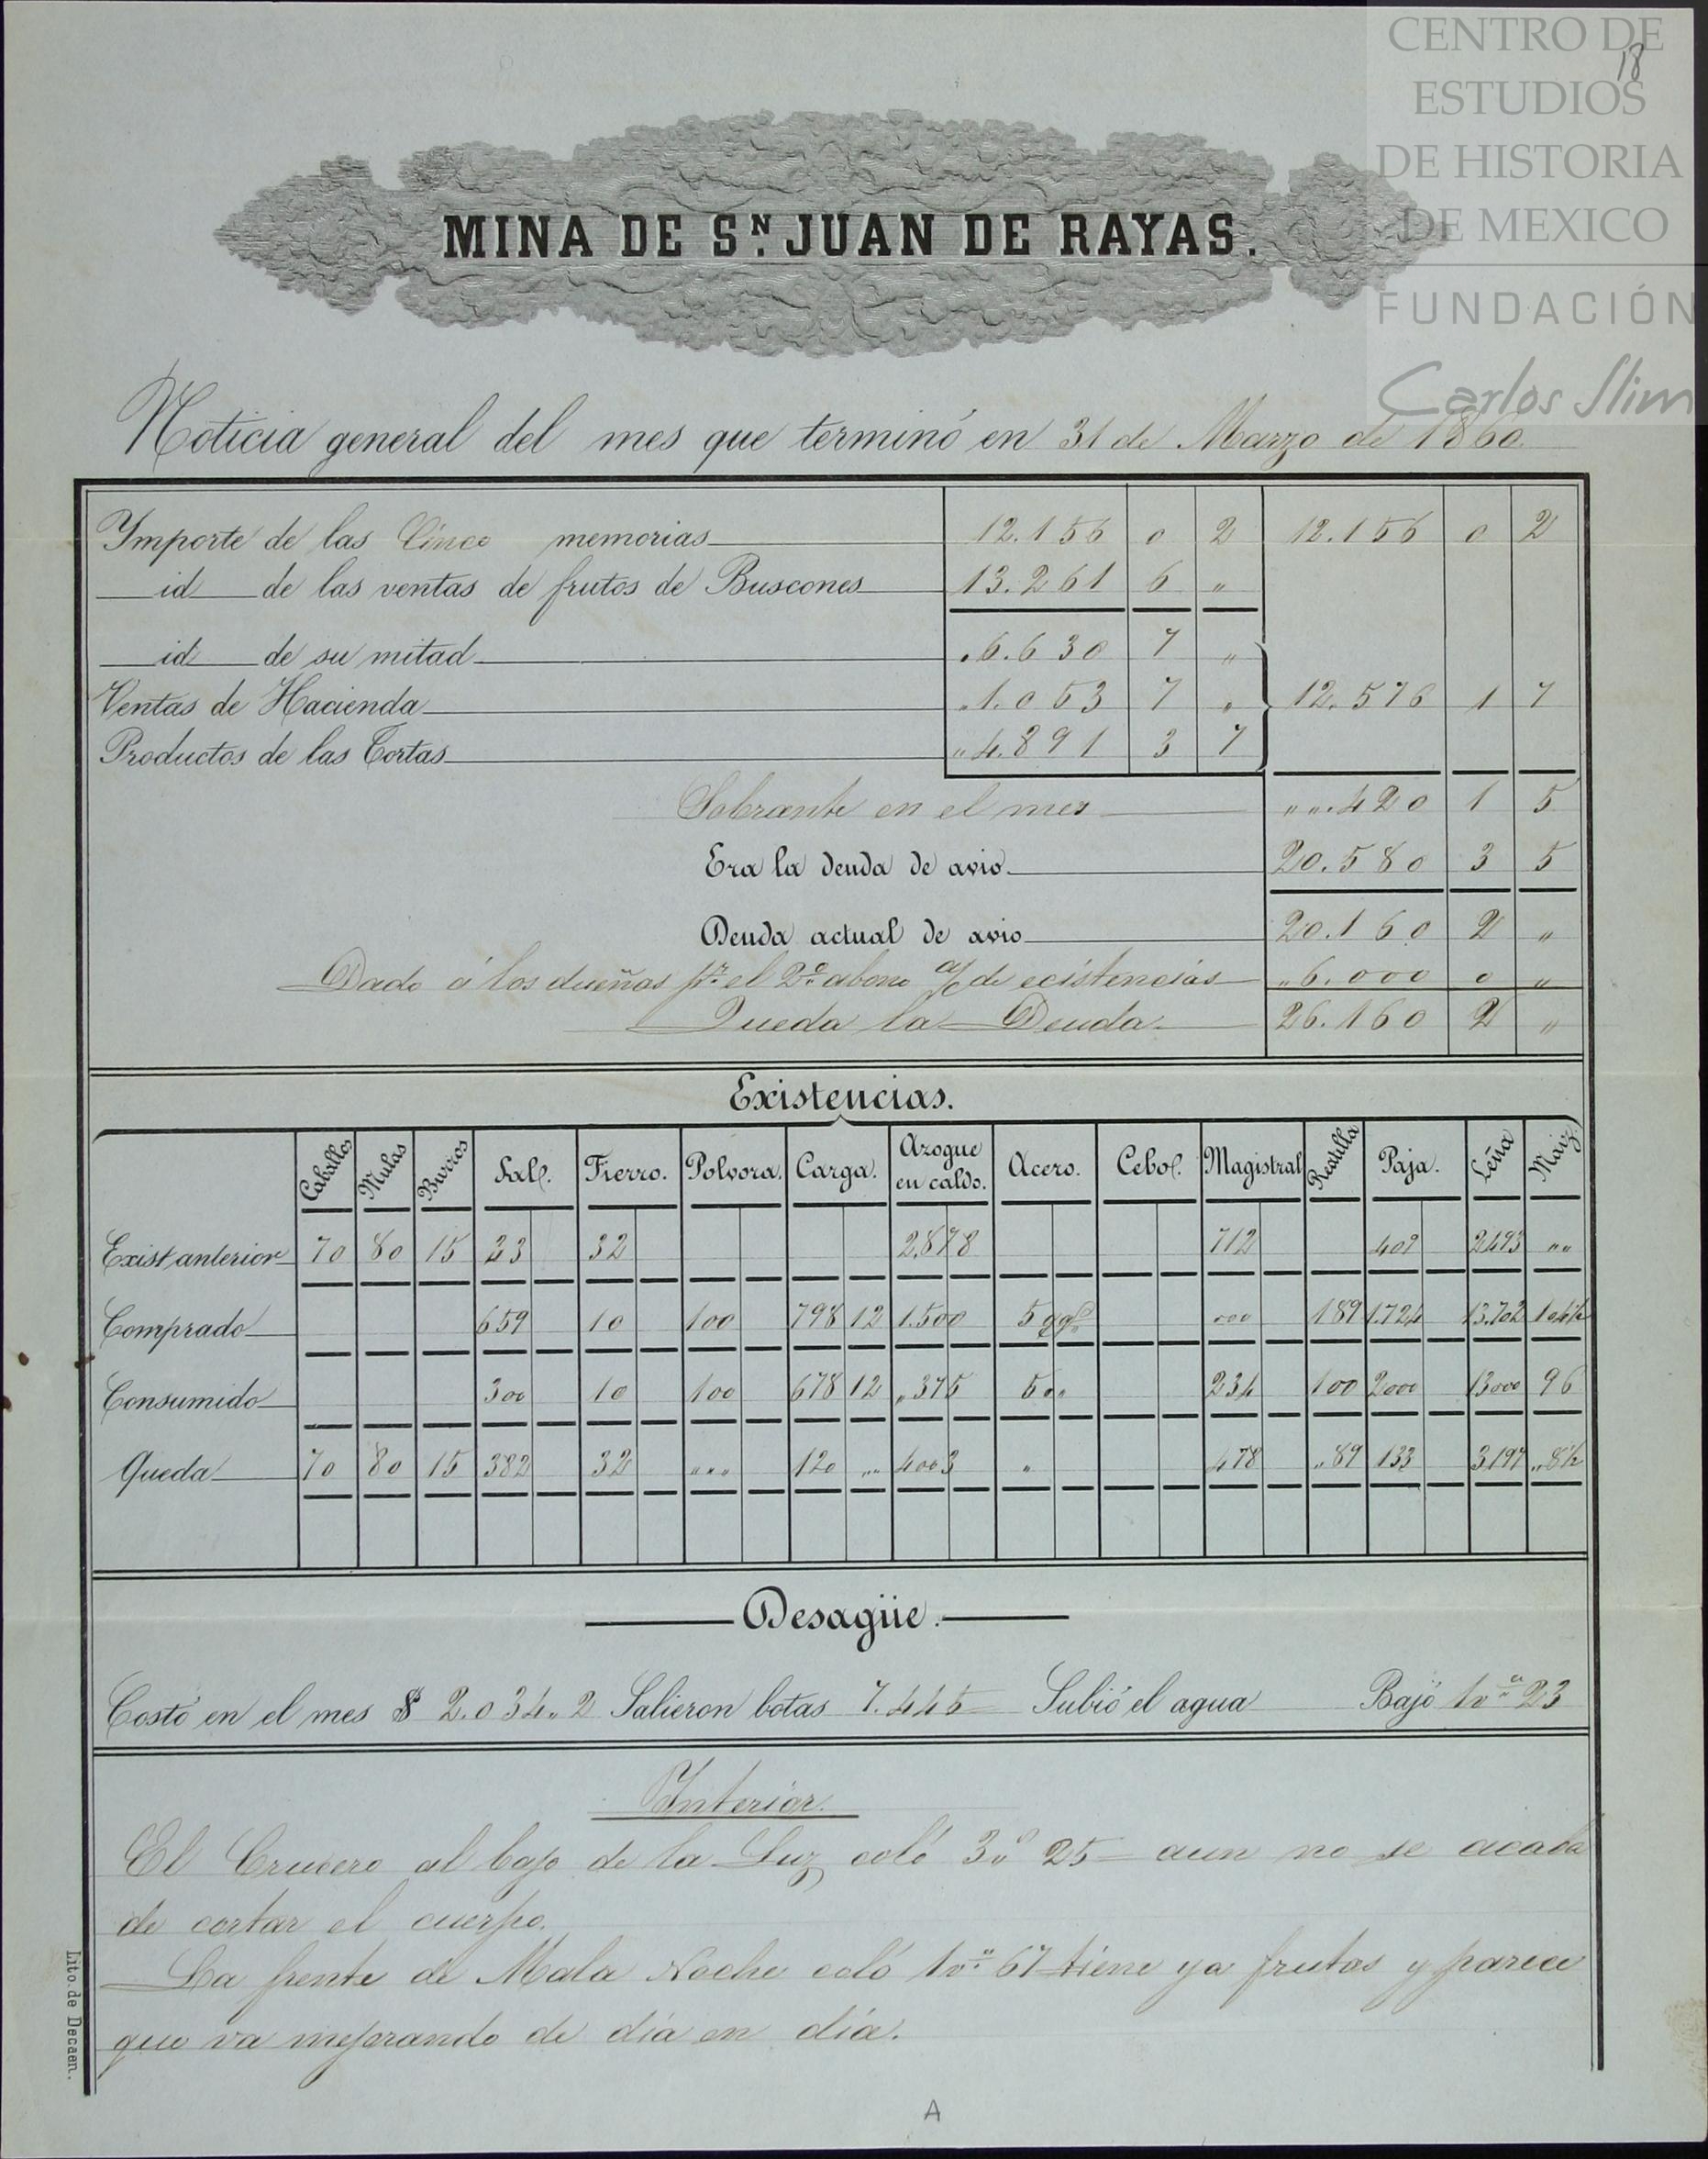 CENTRO DE
ESTUDIOS
DE HISTORIA
DE MEXICO
FUNDACIÓN
Carlos Slim
18
MINA DE Sn. JUAN DE RAYAS.
Noticia general del mes que terminó en 31 de Marzo de 1860.
Importe de las Cinco memorias 12.156 0 2 12.156 0 2
id de las ventas de frutos de Buscones 13.261 6 „
id de su mitad „6.630 7 „
Ventas de Hacienda „1.053 7 „ 12.576 1 7
Productos de las Tortas „4.891 3 7
Sobrante en el mes „„.420 1 5
Era la deuda de avio 20.580 3 5
Deuda actual de avio 20.160 2 „
Dado á los dueños pr. el 2o. abono a/c de ecsistencias „6.000 0 „
Queda la Deuda 26.160 2 „
Existencias.
Caballos Mulas Burros Sal. Fierro. Polvora. Carga. Azogue en caldo. Acero. Cebo. Magistral Rastilla Paja. Leña Maiz
Exist anterior 70 80 15 23 32 2.878 712 409 2493 „„
Comprado 659 10 100 798 12 1.500 5 qqs. „„„ 189 1.724 13.702 104½
Consumido 300 10 100 678 12 „375 5„„ 234 100 2000 13000 96
Queda 70 80 15 382 32 „„„ 120 „„ 4003 „ 478 „89 133 3197 „8½
Desagüe.
Costó en el mes $ 2.034„2 Salieron botas 7.445 Subió el agua Bajó 1va. 23
Interior.
El Crucero al bajo de la Luz coló 3v 25 aun no se acaba
de cortar el cuerpo.
La frente de Mala Noche coló 1va. 67 tiene ya frutos y parece
que va mejorando de día en día.
Lito. de Decaen.
A